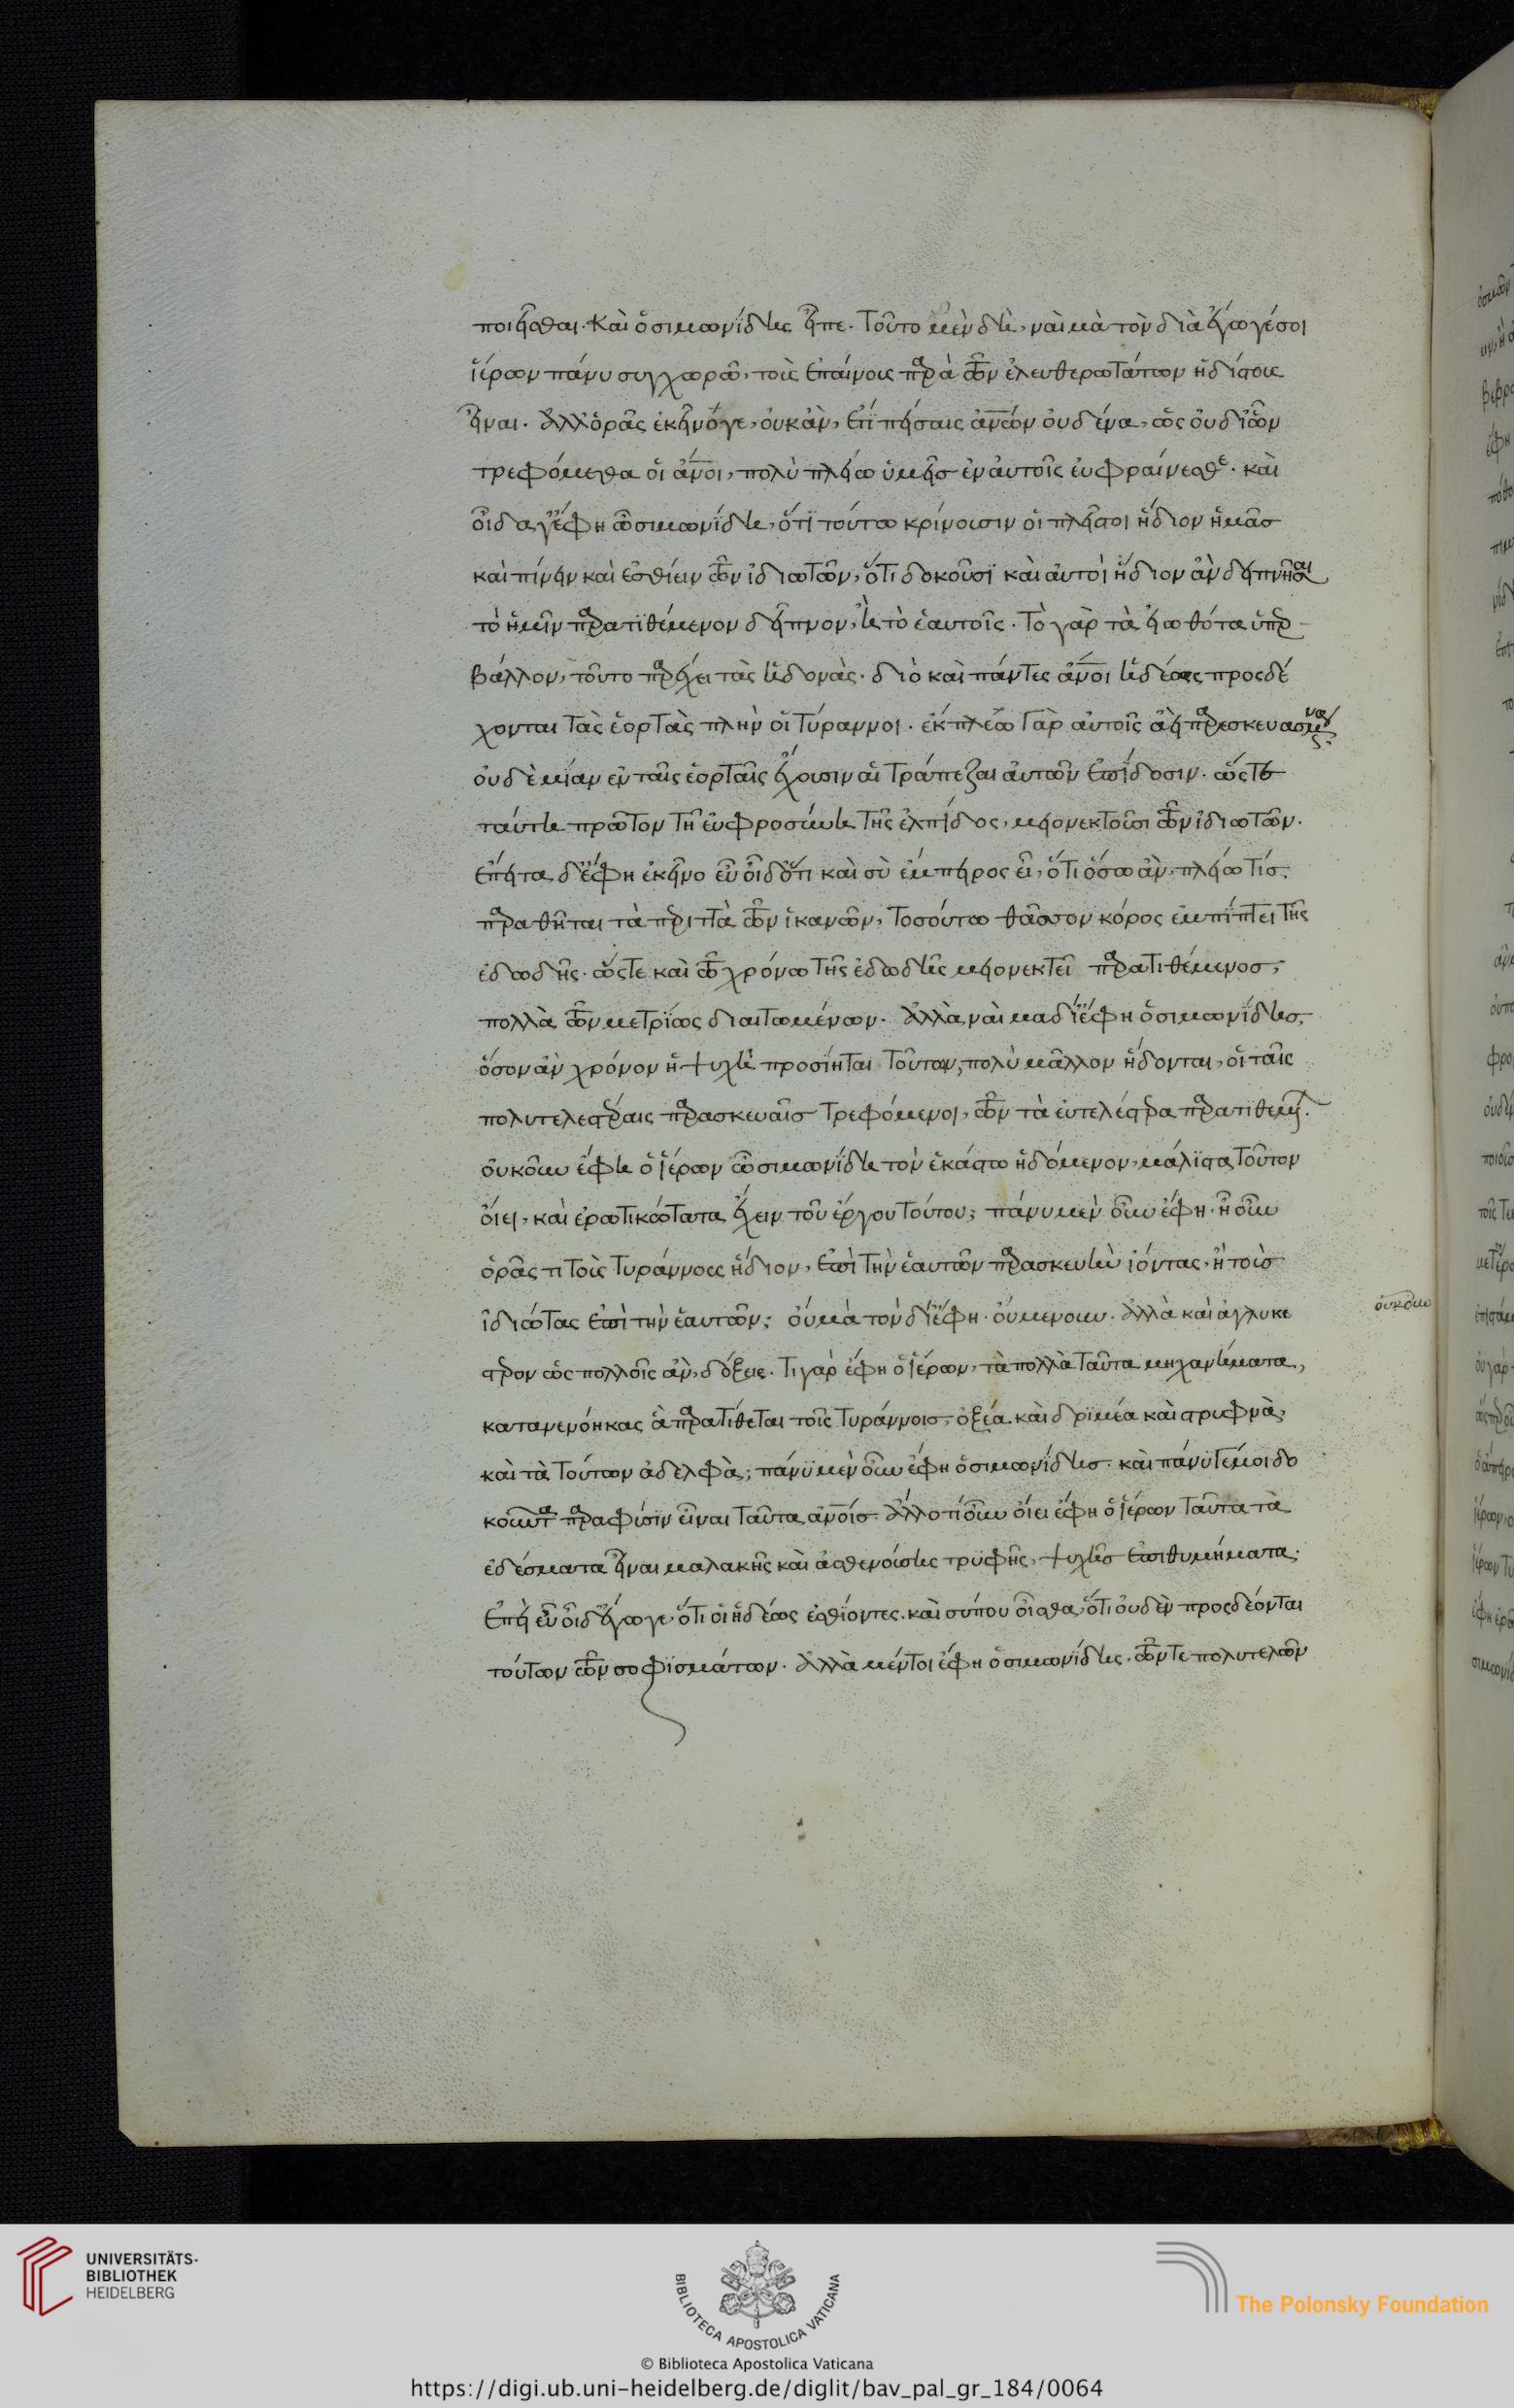 ποιεῖσθαι. Καὶ ὁ σιμωνίδης εἶπε. Τοῦτο μὲν δὴ, ναὶ μὰ τὸν δία ἔγωγέ σοι
ἱέρων πάνυ συγχωρῶ, τοὺς ἐπαίνους παρὰ τῶν ἐλευθερωτάτων ἡδίστους
εἶναι. Ἀλλ' ὁρᾶς ἐκεῖνό γε, οὐκ ἂν, ἔτι πείσαις ἀνων οὐδένα, ὡς οὐ δι' ὧν
τρεφόμεθα οἱ ἀνοι, πολὺ πλείω ὑμεῖς ἐν αὐτοῖς εὐφραίνεσθε. καὶ
οἶδα γ' ἔφη ὦ σιμωνίδη, ὅτι τούτω κρίνουσιν οἱ πλεῖστοι ἥδιον ἡμᾶς
καὶ πίνειν καὶ ἐσθίειν τῶν ἰδιωτῶν, ὅτι δοκοῦσι καὶ αὐτοὶ ἥδιον ἂν δειπνῆσαι
τὸ ἡμῖν παρατιθέμενον δεῖπνον, ἢ τὸ ἑαυτοῖς. Τὸ γὰρ τὰ εἰωθότα ὑπερ
βάλλον, τοῦτο παρέχει τὰς ἡδονὰς. διὸ καὶ πάντες ἀνοι ἡδέως προσδέ
χονται τὰς ἑορτὰς πλὴν οἱ τύραννοι. ἔκπλεω γὰρ αὐτοῖς ἀεὶ παρεσκευασμέναι
οὐδεμίαν ἐν ταῖς ἑορταῖς ἔχουσιν αἱ τράπεζαι αὐτῶν ἐπίδοσιν. ὥστε
ταύτη πρῶτον τῆ εὐφροσύνη τῆς ἐλπίδος, μειονεκτοῦσι τῶν ἰδιωτῶν.
ἔπειτα δ' ἔφη ἐκεῖνο εὖ οἶδ' ὅτι καὶ σὺ ἔμπειρος εἶ, ὅτι ὅσω ἂν πλείω τίς
παραθῆται τὰ περιττὰ τῶν ἱκανῶν, τοσούτω θᾶσσον κόρος ἐμπίπτει τῆς
ἐδωδῆς. ὥστε καὶ τῶ χρόνω τῆς ἐδωδῆς μειονεκτεῖ παρατιθέμενος,
πολλὰ τῶν μετρίως διαιτωμένων. Ἀλλὰ ναὶ μὰ δί' ἔφη ὁ σιμωνίδης,
ὅσον ἂν χρόνον ἡ ψυχὴ προσίηται τοῦτον, πολὺ μᾶλλον ἥδονται, οἱ ταῖς
πολυτελεστέραις παρασκευαῖς τρεφόμενοι, τῶν τὰ εὐτελέστερα παρατιθεμένων.
οὐκοῦν ἔφη ὁ ἱέρων ὦ σιμωνίδη τὸν ἑκάστω ἡδόμενον μάλιστα τοῦτον
οἴει, καὶ ἐρωτικώτατα ἔχειν τοῦ ἔργου τούτου; πάνυ μὲν οὖν ἔφη. ἦ οὖν
ὁρᾶς τι τοὺς τυράννους ἥδιον, ἐπὶ τὴν ἑαυτῶν παρασκευὴν ἰόντας, ἢ τοὺς
ἰδιώτας ἐπὶ τὴν ἑαυτῶν; οὐ μὰ τὸν δί' ἔφη. οὐ μενουν. ἀλλὰ καὶ ἀγλυκέ
στερον ὡς πολλοῖς ἂν δόξειε. Τί γὰρ ἔφη ὁ ἱέρων, τὰ πολλὰ ταῦτα μηχανήματα,
κατανενόηκας ἃ παρατίθεται τοῖς τυράννοις, ὀξέα καὶ δριμέα καὶ στρυφνὰ,
καὶ τὰ τούτων ἀδελφὰ; πάνυ μὲν οὖν ἔφη ὁ σιμωνίδης. καὶ πάνυ γ' ἐμοὶ δο
κοῦντα παρὰ φύσιν εἶναι ταῦτα ἀνοις. Ἄλλό τι οὖν οἴει ἔφη ὁ ἱέρων ταῦτα τὰ
ἐδέσματα εἶναι μαλακῆς καὶ ἀσθενούσης τρυφῆς, ψυχῆς ἐπιθυμήματα;
ἐπεὶ εὖ οἶδ' ἔγωγε ὅτι οἱ ἡδέως ἐσθίοντες. καὶ σύ που οἶσθα, ὅτι οὐδὲν προσδέονται
τούτων τῶν σοφισμάτων. Ἀλλὰ μέντοι ἔφη ὁ σιμωνίδης. τῶν τε πολυτελῶν
οὐκοῦν
UNIVERSITÄTS-
BIBLIOTHEK
HEIDELBERG
BIBLIOTECA APOSTOLICA VATICANA
The Polonsky Foundation
© Biblioteca Apostolica Vaticana
https://digi.ub.uni-heidelberg.de/diglit/bav_pal_gr_184/0064